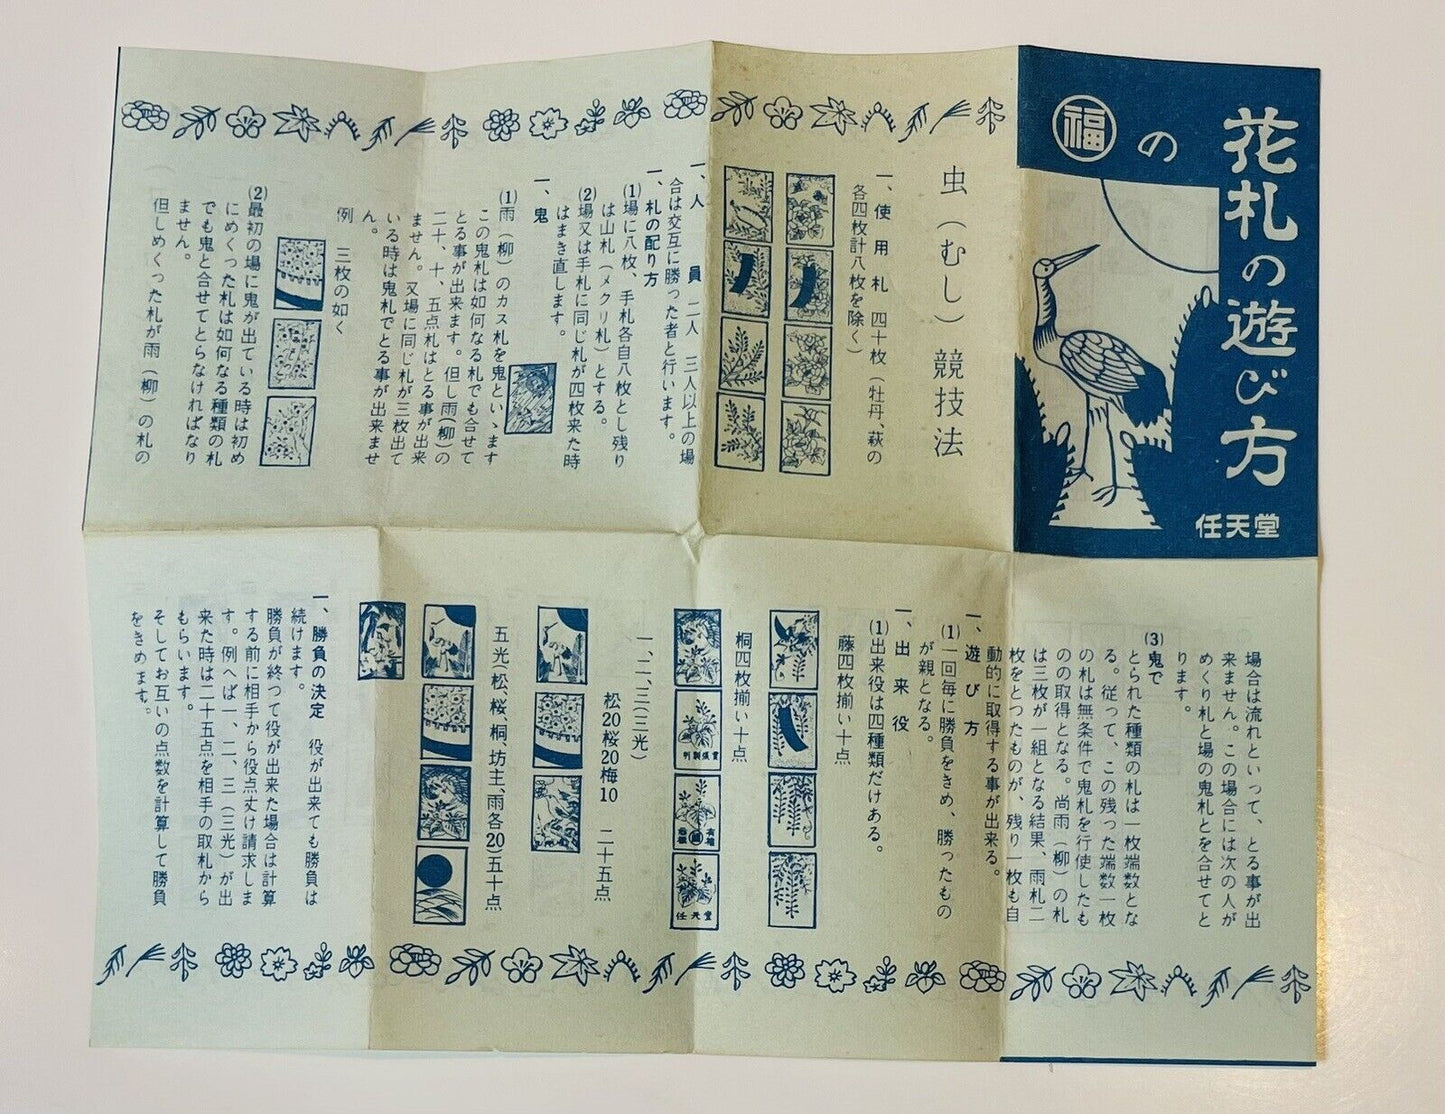 花札の遊び方
福の
任天堂
虫（むし）競技法
一、使用札　四十枚（牡丹、萩の
各四枚計八枚を除く）
一、人　員　二人　三人以上の場
合は交互に勝った者と行います。
一、札の配り方
(1)場に八枚、手札各自八枚とし残り
は山札（メクリ札）とする。
(2)場又は手札に同じ札が四枚来た時
はまき直します。
一、鬼
(1)雨（柳）のカス札を鬼といゝます
この鬼札は如何なる札でも合せて
とる事が出来ます。但し雨（柳）の
二十、十、五点札はとる事が出来
ません。又場に同じ札が三枚出て
いる時は鬼札でとる事が出来ませ
ん。
例　三枚の如く
(2)最初の場に鬼が出ている時は初め
にめくった札は如何なる種類の札
でも鬼と合せてとらなければなり
ません。
但しめくった札が雨（柳）の札の
場合は流れといって、とる事が出
来ません。この場合には次の人が
めくり札と場の鬼札とを合せてと
ります。
(3)鬼で
とられた種類の札は一枚端数とな
る。従って、この残った端数一枚
の札は無条件で鬼札を行使したも
のの取得となる。尚雨（柳）の札
は三枚が一組となる結果、雨札二
枚をとつたものが、残り一枚も自
動的に取得する事が出来る。
一、遊び方
(1)一回毎に勝負をきめ、勝ったもの
が親となる。
一、出来役
(1)出来役は四種類だけある。
藤四枚揃い十点
桐四枚揃い十点
任天堂
一、二、三（三光）
松20桜20梅10　二十五点
五光（松、桜、桐、坊主、雨各20）五十点
一、勝負の決定　役が出来ても勝負は
続けます。
勝負が終つて役が出来た場合は計算
する前に相手から役点丈け請求しま
す。例へば一、二、三（三光）が出
来た時は二十五点を相手の取札から
もらいます。
そしてお互いの点数を計算して勝負
をきめます。